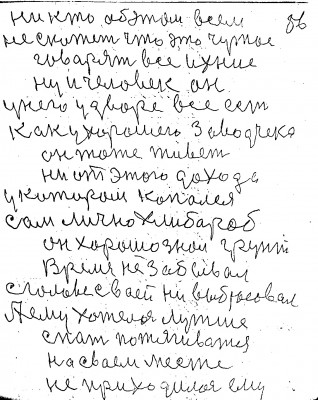 никто обэтом всем 86
нескожет что это чужое
говарят все ихние
ну и человек он
унего удворе все ест
как ухорошего Заводчека
он тоже живет
ни от этого дохода
укотором копался
сам лично хлибароб
он хорошо знол грунт
Время не Забывал
с головесваей ни выбрасовал
Яему хотелоя лутше
спат потягиватся
на сваем месте
не приходилоя ему